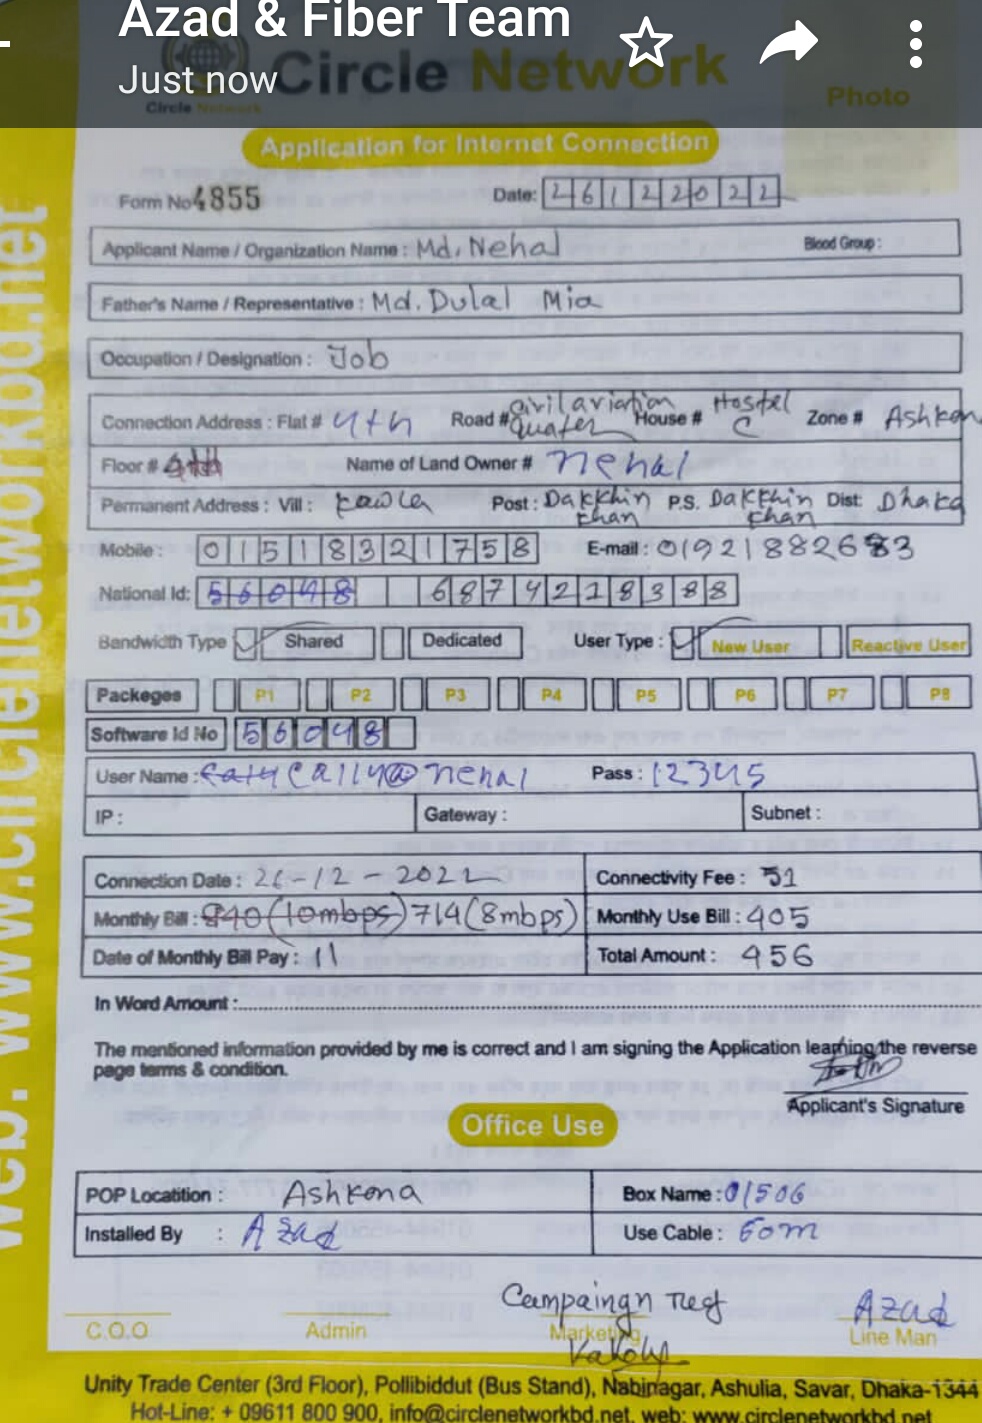 Azad & Fiber Team
Just now
Circle Network
Circle Network
Photo
Application for Internet Connection
Form No 4855 Date: 26122022
Applicant Name / Organization Name : Md. Nehal Blood Group :
Father's Name / Representative : Md. Dulal Mia
Occupation / Designation : Job
Connection Address : Flat # 4th Road # civil aviation quater House # Hostel C Zone # Ashkon
Floor # 4th Name of Land Owner # Nehal
Permanent Address : Vill : kawla Post : Dakkhin khan P.S. Dakkhin khan Dist: Dhaka
Mobile : 01518321758 E-mail : 01921882683
National Id: 56048 6874228388
Bandwidth Type Shared Dedicated User Type : New User Reactive User
Packeges P1 P2 P3 P4 P5 P6 P7 P8
Software Id No 56048
User Name : cally@nehal Pass : 12345
IP : Gateway : Subnet :
Connection Date : 26-12-2022 Connectivity Fee : 51
Monthly Bill : 840 (10mbps) 714 (8mbps) Monthly Use Bill : 405
Date of Monthly Bill Pay : 11 Total Amount : 456
In Word Amount :
The mentioned information provided by me is correct and I am signing the Application learning the reverse
page terms & condition.
Applicant's Signature
Office Use
POP Locatition : Ashkona Box Name : 01506
Installed By : Azad Use Cable : 60m
Campaingn
Azad
C.O.O Admin Marketing Line Man
Unity Trade Center (3rd Floor), Pollibiddut (Bus Stand), Nabinagar, Ashulia, Savar, Dhaka-1344
Hot-Line: + 09611 800 900, info@circlenetworkbd.net, web: www.circlenetworkbd.net
web: www.circlenetworkbd.net